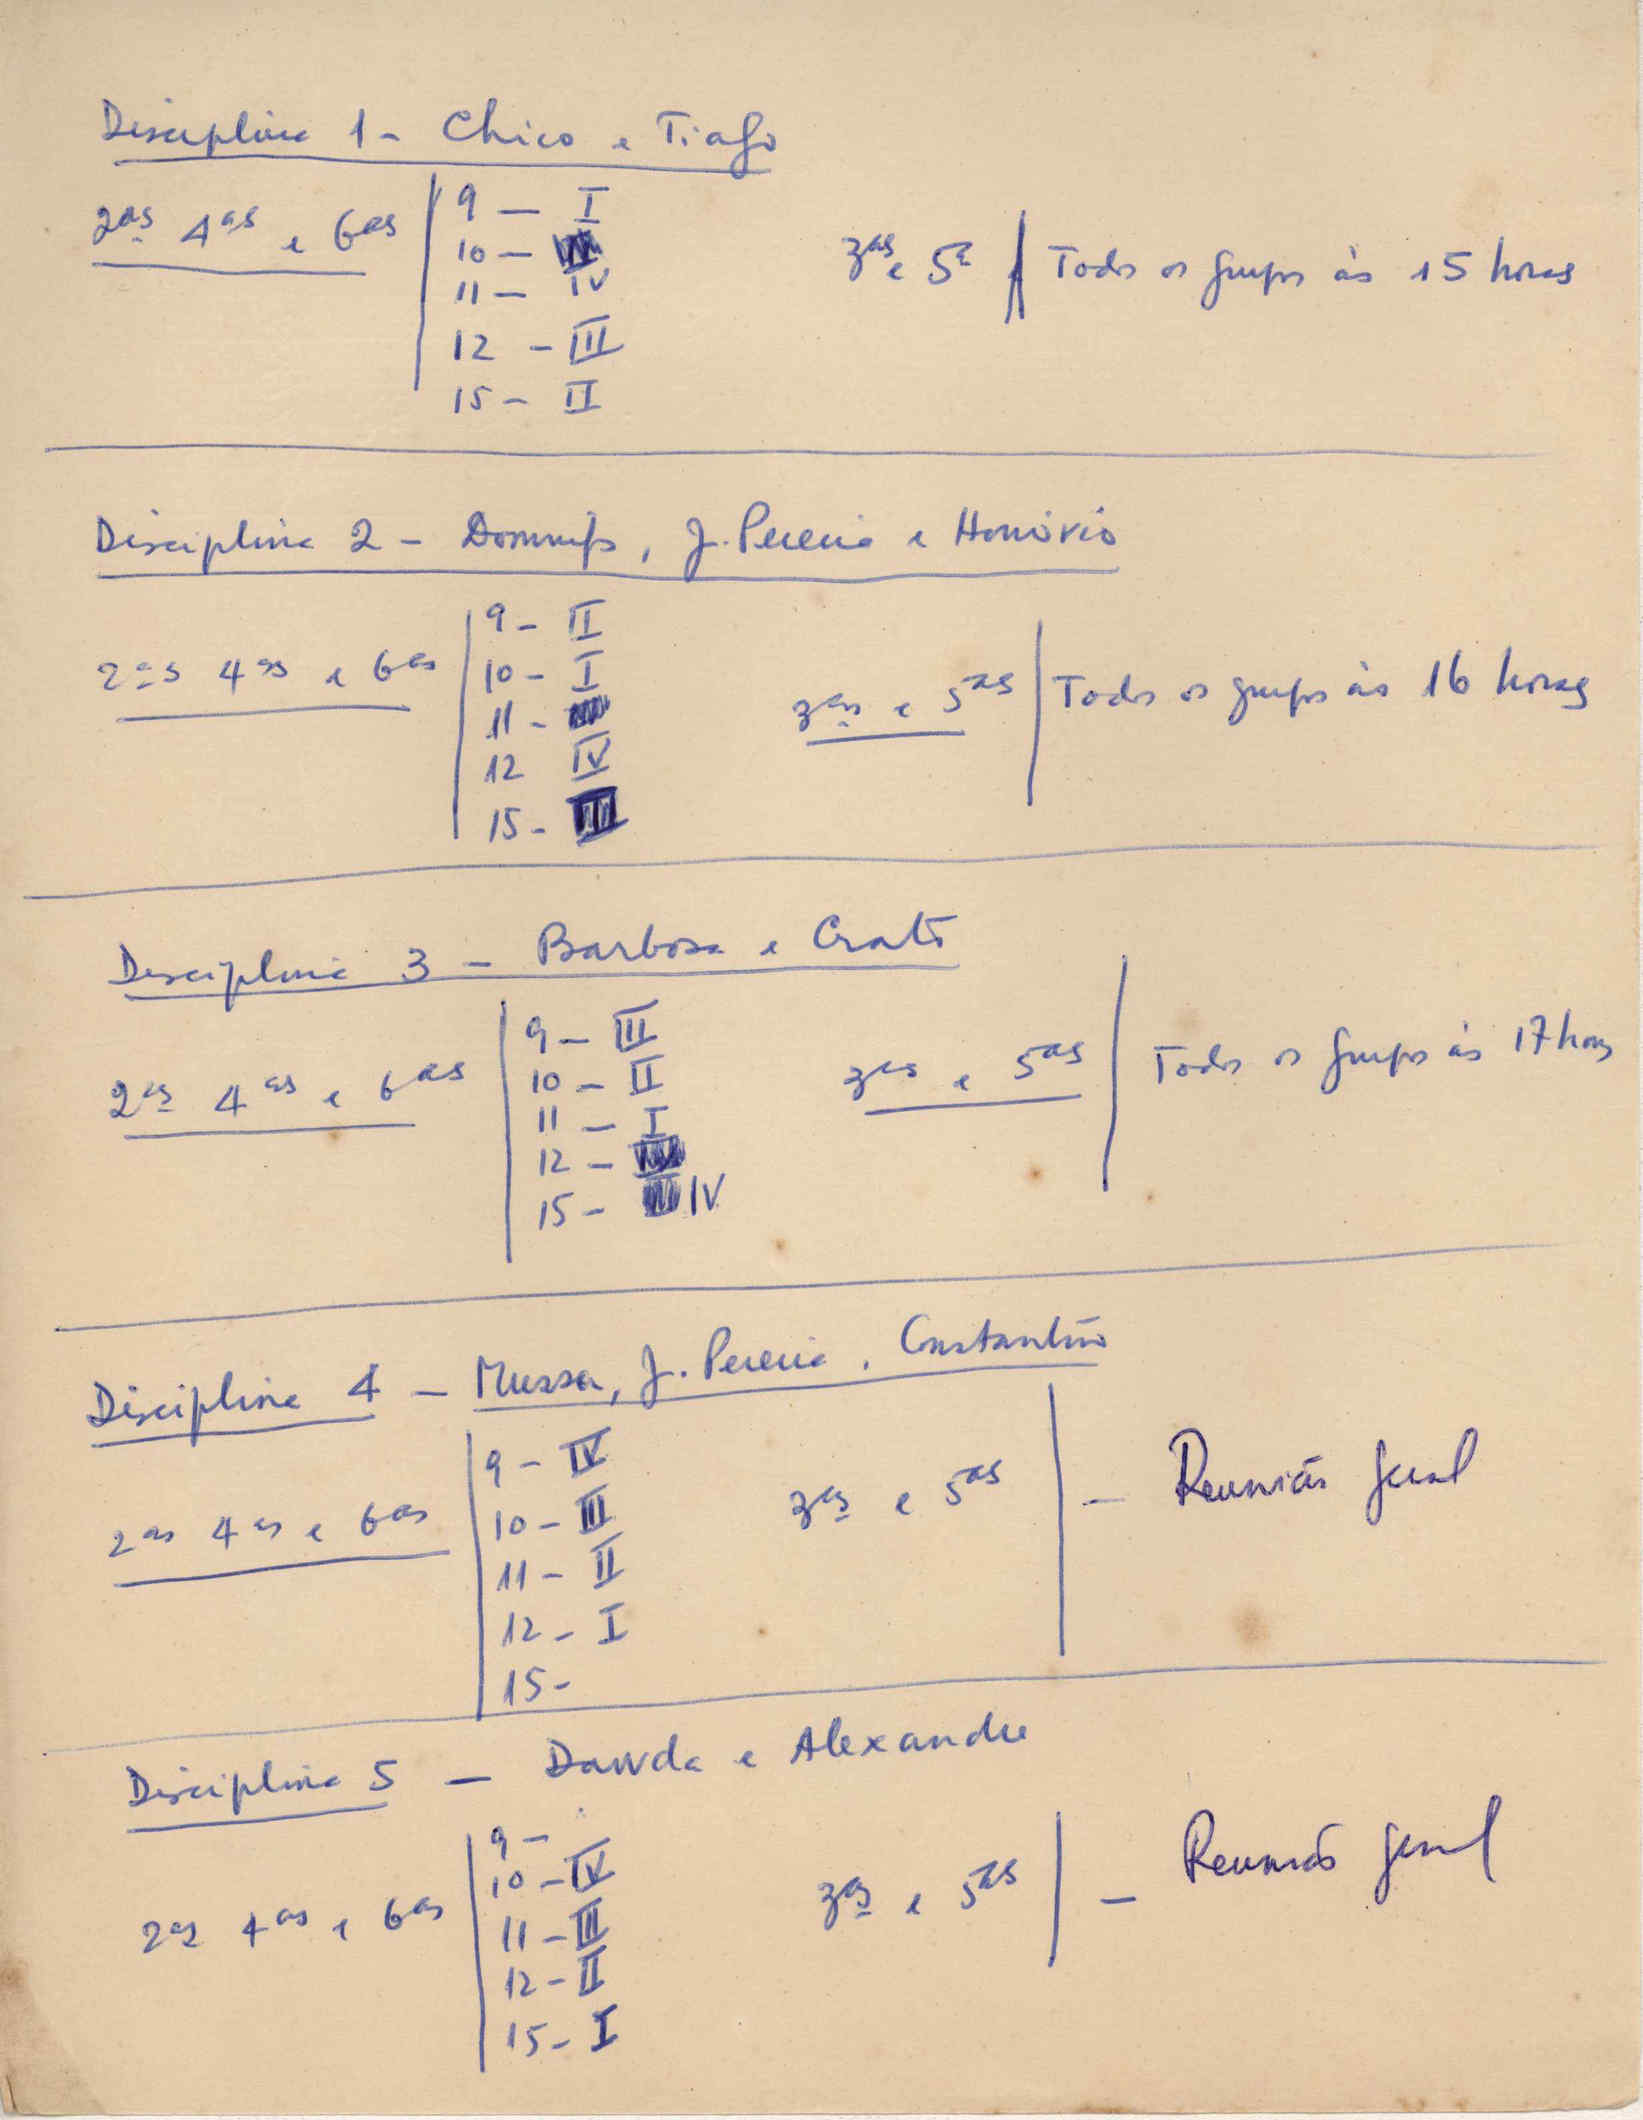 Disciplina 1 - Chico e Tiago
2as 4as e 6as
9 — I
10 —
11 — IV
12 - III
15 - II
3as e 5ª Todos os grupos às 15 horas
Disciplina 2 - Domingos, J. Pereira e Honório
2as 4as e 6as
9 - II
10 - I
11 -
12 IV
15 - III
3as e 5as Todos os grupos às 16 horas
Disciplina 3 - Barbosa e Crato
2as 4as e 6as
9 - III
10 - II
11 - I
12 -
15 - IV
3as e 5as Todos os grupos às 17 horas
Disciplina 4 - Mussa, J. Pereira, Constantino
2as 4as e 6as
9 - IV
10 - III
11 - II
12 - I
15 -
3as e 5as - Reunião geral
Disciplina 5 - Dawda e Alexandre
2as 4as e 6as
9 -
10 - IV
11 - III
12 - II
15 - I
3as e 5as - Reunião geral